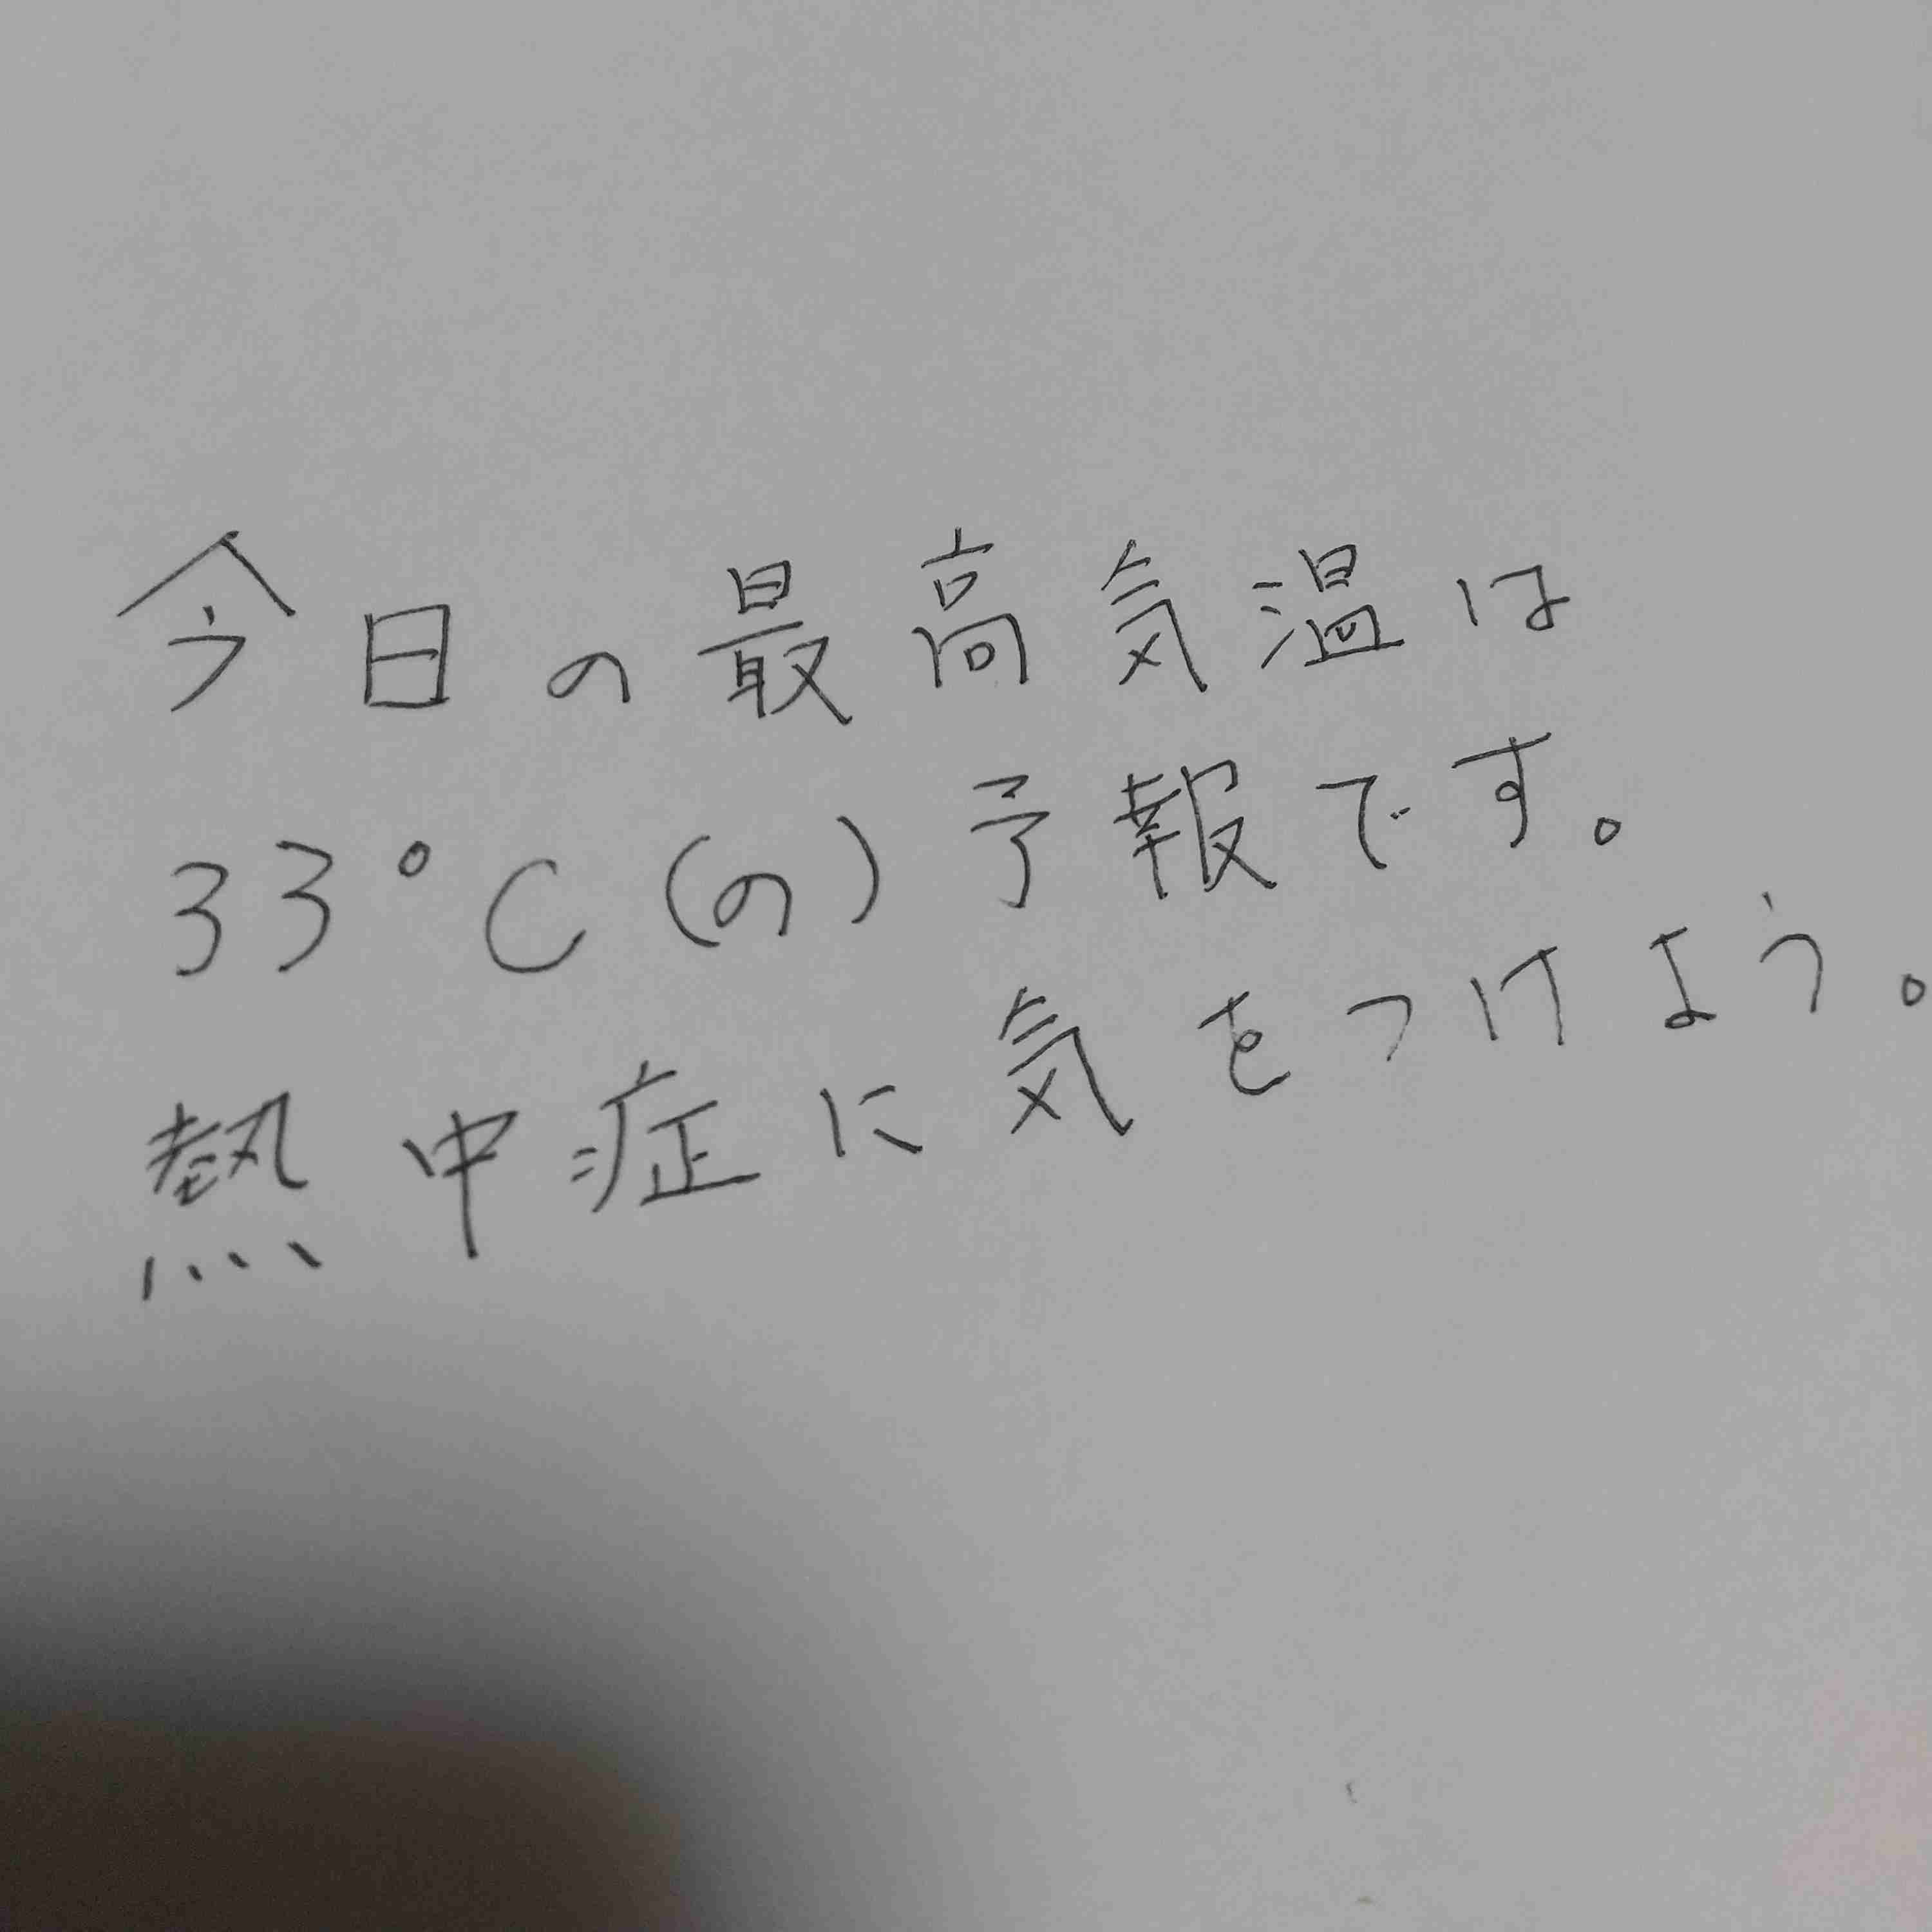 今日の最高気温は
33°C(の)予報です。
熱中症に気をつけよう。